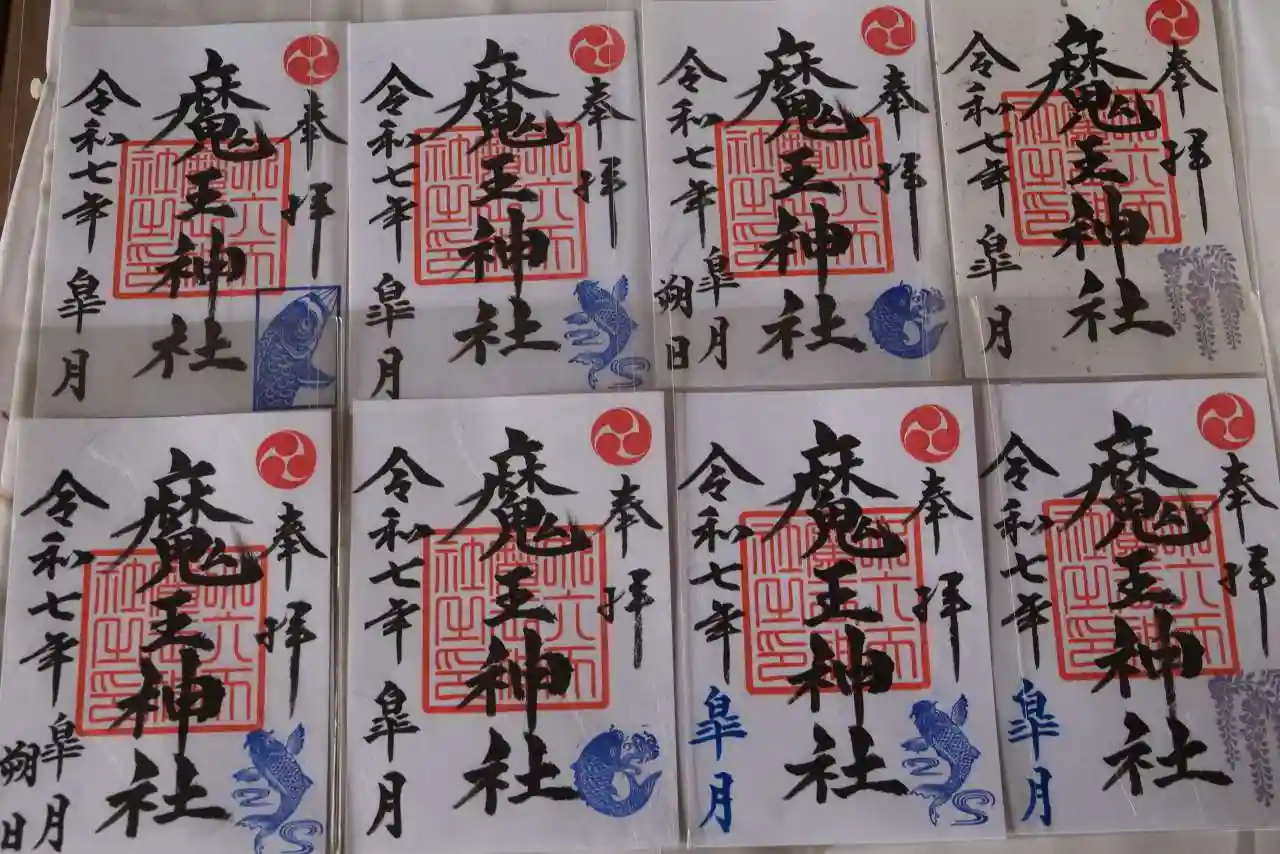 奉拝
魔王神社
令和七年皐月
奉拝
魔王神社
令和七年皐月
奉拝
魔王神社
令和七年皐月
朔日
奉拝
魔王神社
令和七年皐月
奉拝
魔王神社
令和七年皐月
朔日
奉拝
魔王神社
令和七年皐月
奉拝
魔王神社
令和七年皐月
奉拝
魔王神社
令和七年皐月